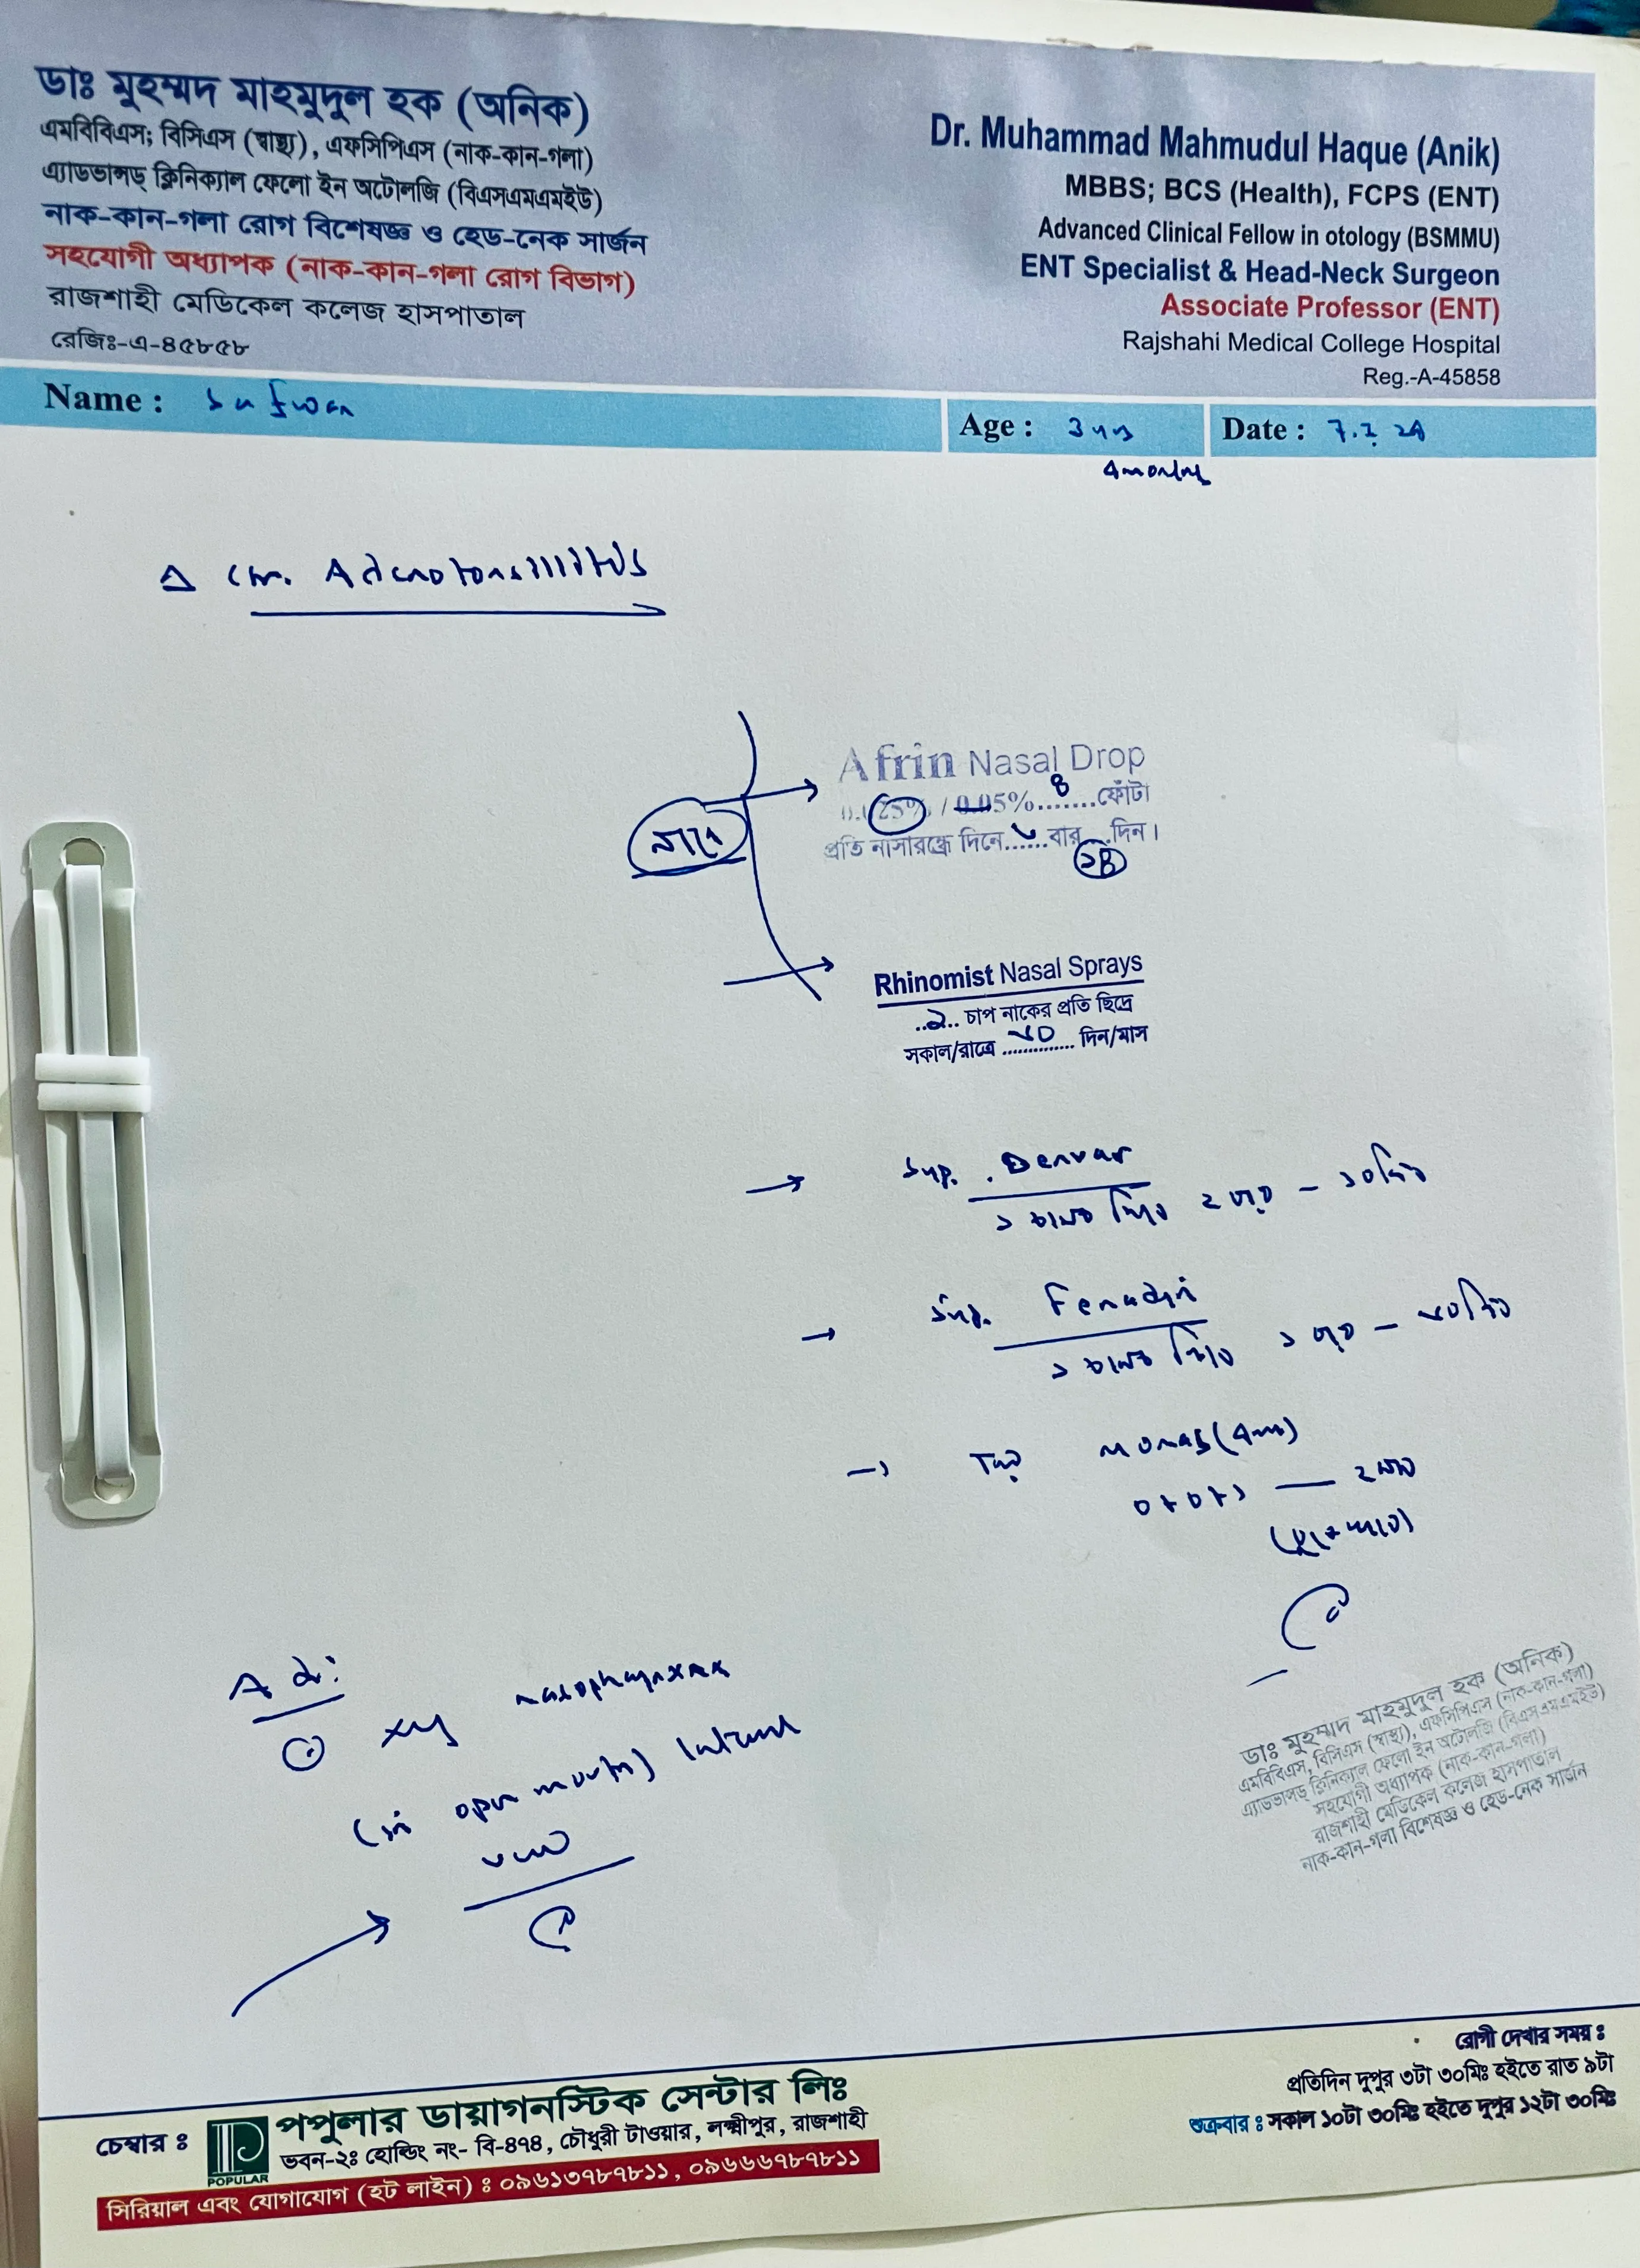 ডাঃ মুহম্মদ মাহমুদুল হক (অনিক)
এমবিবিএস; বিসিএস (স্বাস্থ্য), এফসিপিএস (নাক-কান-গলা)
এ্যাডভান্সড্ ক্লিনিক্যাল ফেলো ইন অটোলজি (বিএসএমএমইউ)
নাক-কান-গলা রোগ বিশেষজ্ঞ ও হেড-নেক সার্জন
সহযোগী অধ্যাপক (নাক-কান-গলা রোগ বিভাগ)
রাজশাহী মেডিকেল কলেজ হাসপাতাল
রেজিঃ-এ-৪৫৮৫৮
Dr. Muhammad Mahmudul Haque (Anik)
MBBS; BCS (Health), FCPS (ENT)
Advanced Clinical Fellow in otology (BSMMU)
ENT Specialist & Head-Neck Surgeon
Associate Professor (ENT)
Rajshahi Medical College Hospital
Reg.-A-45858
Name : Safwan
Age : 3 yrs
4 months
Date :
Δ Chr. Adenotonsillitis
নাকে
Afrin Nasal Drop
/ 0.05% ....... ফোঁটা
প্রতি নাসারন্ধ্রে দিনে ...... বার ... দিন।
Rhinomist Nasal Sprays
..২.. চাপ নাকের প্রতি ছিদ্রে
সকাল/রাত্রে .............. দিন/মাস
Syp. Denvar
১ চামচ করে ২ বার – ১০ দিন
Syp. Fenadin
১ চামচ করে ১ বার – ৩০ দিন
Tab Monas (4mg)
০+০+১ — ২ মাস
Ad:
xy nasopharynx
(in open mouth) lateral
view
ডাঃ মুহম্মদ মাহমুদুল হক (অনিক)
এমবিবিএস, বিসিএস (স্বাস্থ্য), এফসিপিএস (নাক-কান-গলা)
এ্যাডভান্সড্ ক্লিনিক্যাল ফেলো ইন অটোলজি (বিএসএমএমইউ)
সহযোগী অধ্যাপক (নাক-কান-গলা)
রাজশাহী মেডিকেল কলেজ হাসপাতাল
নাক-কান-গলা বিশেষজ্ঞ ও হেড-নেক সার্জন
চেম্বার ঃ
POPULAR
পপুলার ডায়াগনস্টিক সেন্টার লিঃ
ভবন-২ঃ হোল্ডিং নং- বি-৪৭৪, চৌধুরী টাওয়ার, লক্ষ্মীপুর, রাজশাহী
সিরিয়াল এবং যোগাযোগ (হট লাইন) ঃ ০৯৬১৩৭৮৭৮১১, ০৯৬৬৬৭৮৭৮১১
রোগী দেখার সময় ঃ
প্রতিদিন দুপুর ৩টা ৩০মিঃ হইতে রাত ৯টা
শুক্রবার ঃ সকাল ১০টা ৩০মিঃ হইতে দুপুর ১২টা ৩০মিঃ